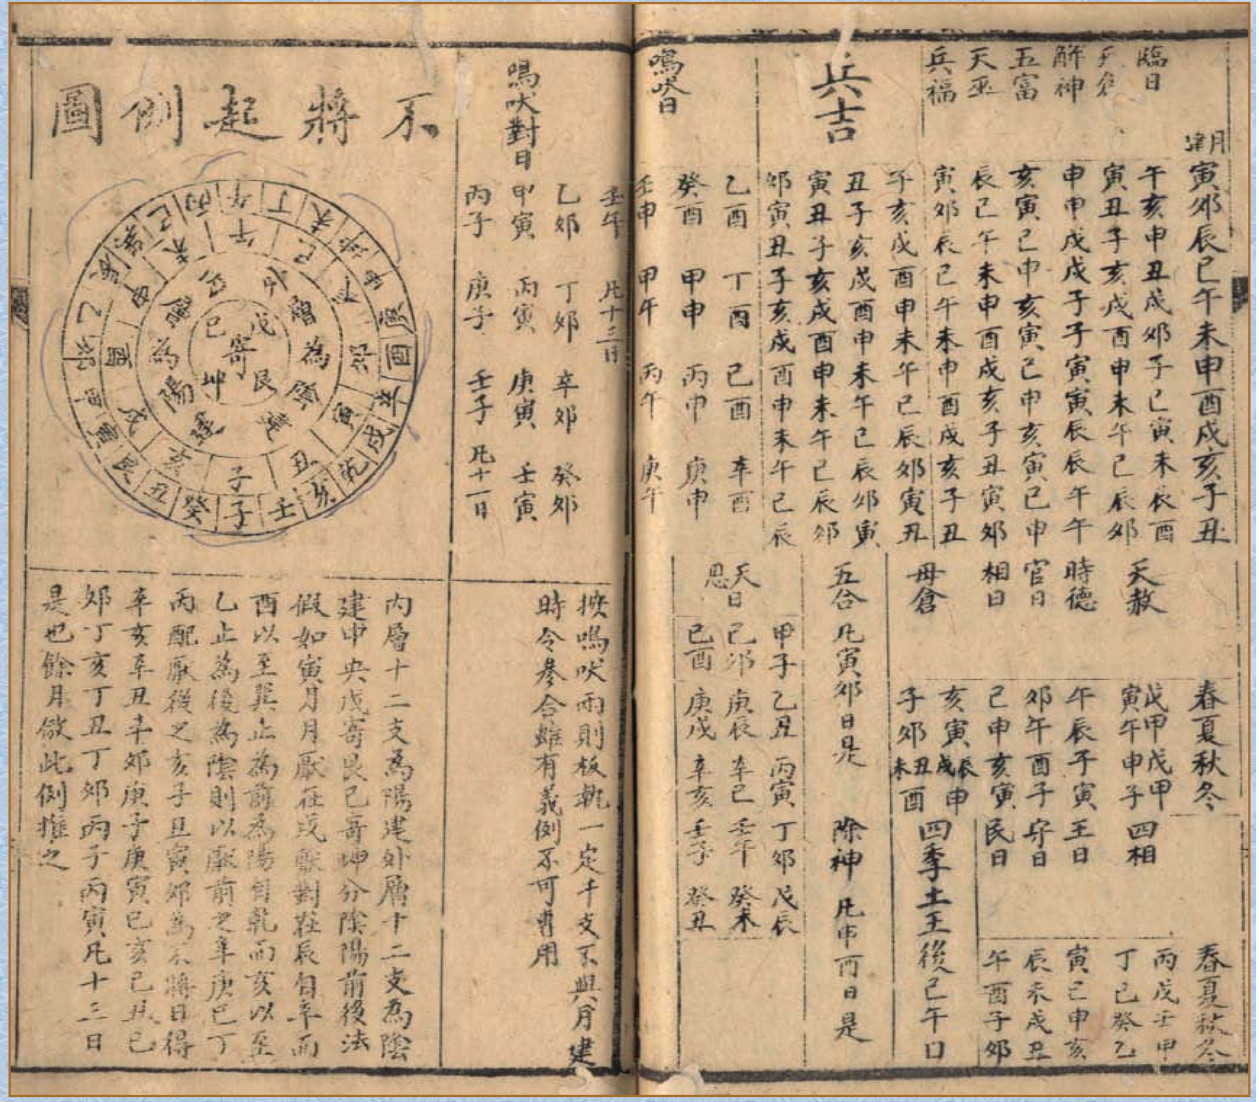 月建 寅卯辰巳午未申酉戌亥子丑
臨日 午亥申丑戌卯子巳寅未辰酉
天倉 寅丑子亥戌酉申未午巳辰卯
解神 申申戌戌子子寅寅辰辰午午
五富 亥寅巳申亥寅巳申亥寅巳申
天巫 辰巳午未申酉戌亥子丑寅卯
兵福 寅卯辰巳午未申酉戌亥子丑
兵吉 子亥戌酉申未午巳辰卯寅丑
丑子亥戌酉申未午巳辰卯寅
寅丑子亥戌酉申未午巳辰卯
卯寅丑子亥戌酉申未午巳辰
鳴吠日 乙酉 丁酉 己酉 辛酉
癸酉 甲申 丙申 庚申
壬申 甲午 丙午 庚午
春夏秋冬 春夏秋冬
天赦 戊寅 甲午 戊申 甲子 四相 丙戊壬甲
丁己癸乙
時德 午辰子寅 王日 寅巳申亥
官日 卯午酉子 守日 辰未戌丑
相日 巳申亥寅 民日 午酉子卯
母倉 亥寅辰戌申 四季土王後巳午日
子卯丑未酉
五合 凡寅卯日是 除神 凡申酉日是
天恩日 甲子 乙丑 丙寅 丁卯 戊辰
己卯 庚辰 辛巳 壬午 癸未
己酉 庚戌 辛亥 壬子 癸丑
壬午 凡十三日
鳴吠對日 乙卯 丁卯 辛卯 癸卯
甲寅 丙寅 庚寅 壬寅
丙子 庚子 壬子 凡十一日
按鳴吠兩則板執一定干支不與月建
時令參合雖有義例不可專用
不將起例圖
戊寄艮
己寄坤
內層十二支為陽建外層十二支為陰
建中央戊寄艮己寄坤分陰陽前後法
假如寅月月厭在戌厭對在辰自辛而
酉以至巽止為前為陽自乾而亥以至
乙止為後為陰則以厭前之辛庚己丁
丙配厭後之亥子丑寅卯為不將日得
辛亥辛丑辛卯庚子庚寅己亥己丑己
卯丁亥丁丑丁卯丙子丙寅凡十三日
是也餘月倣此例推之